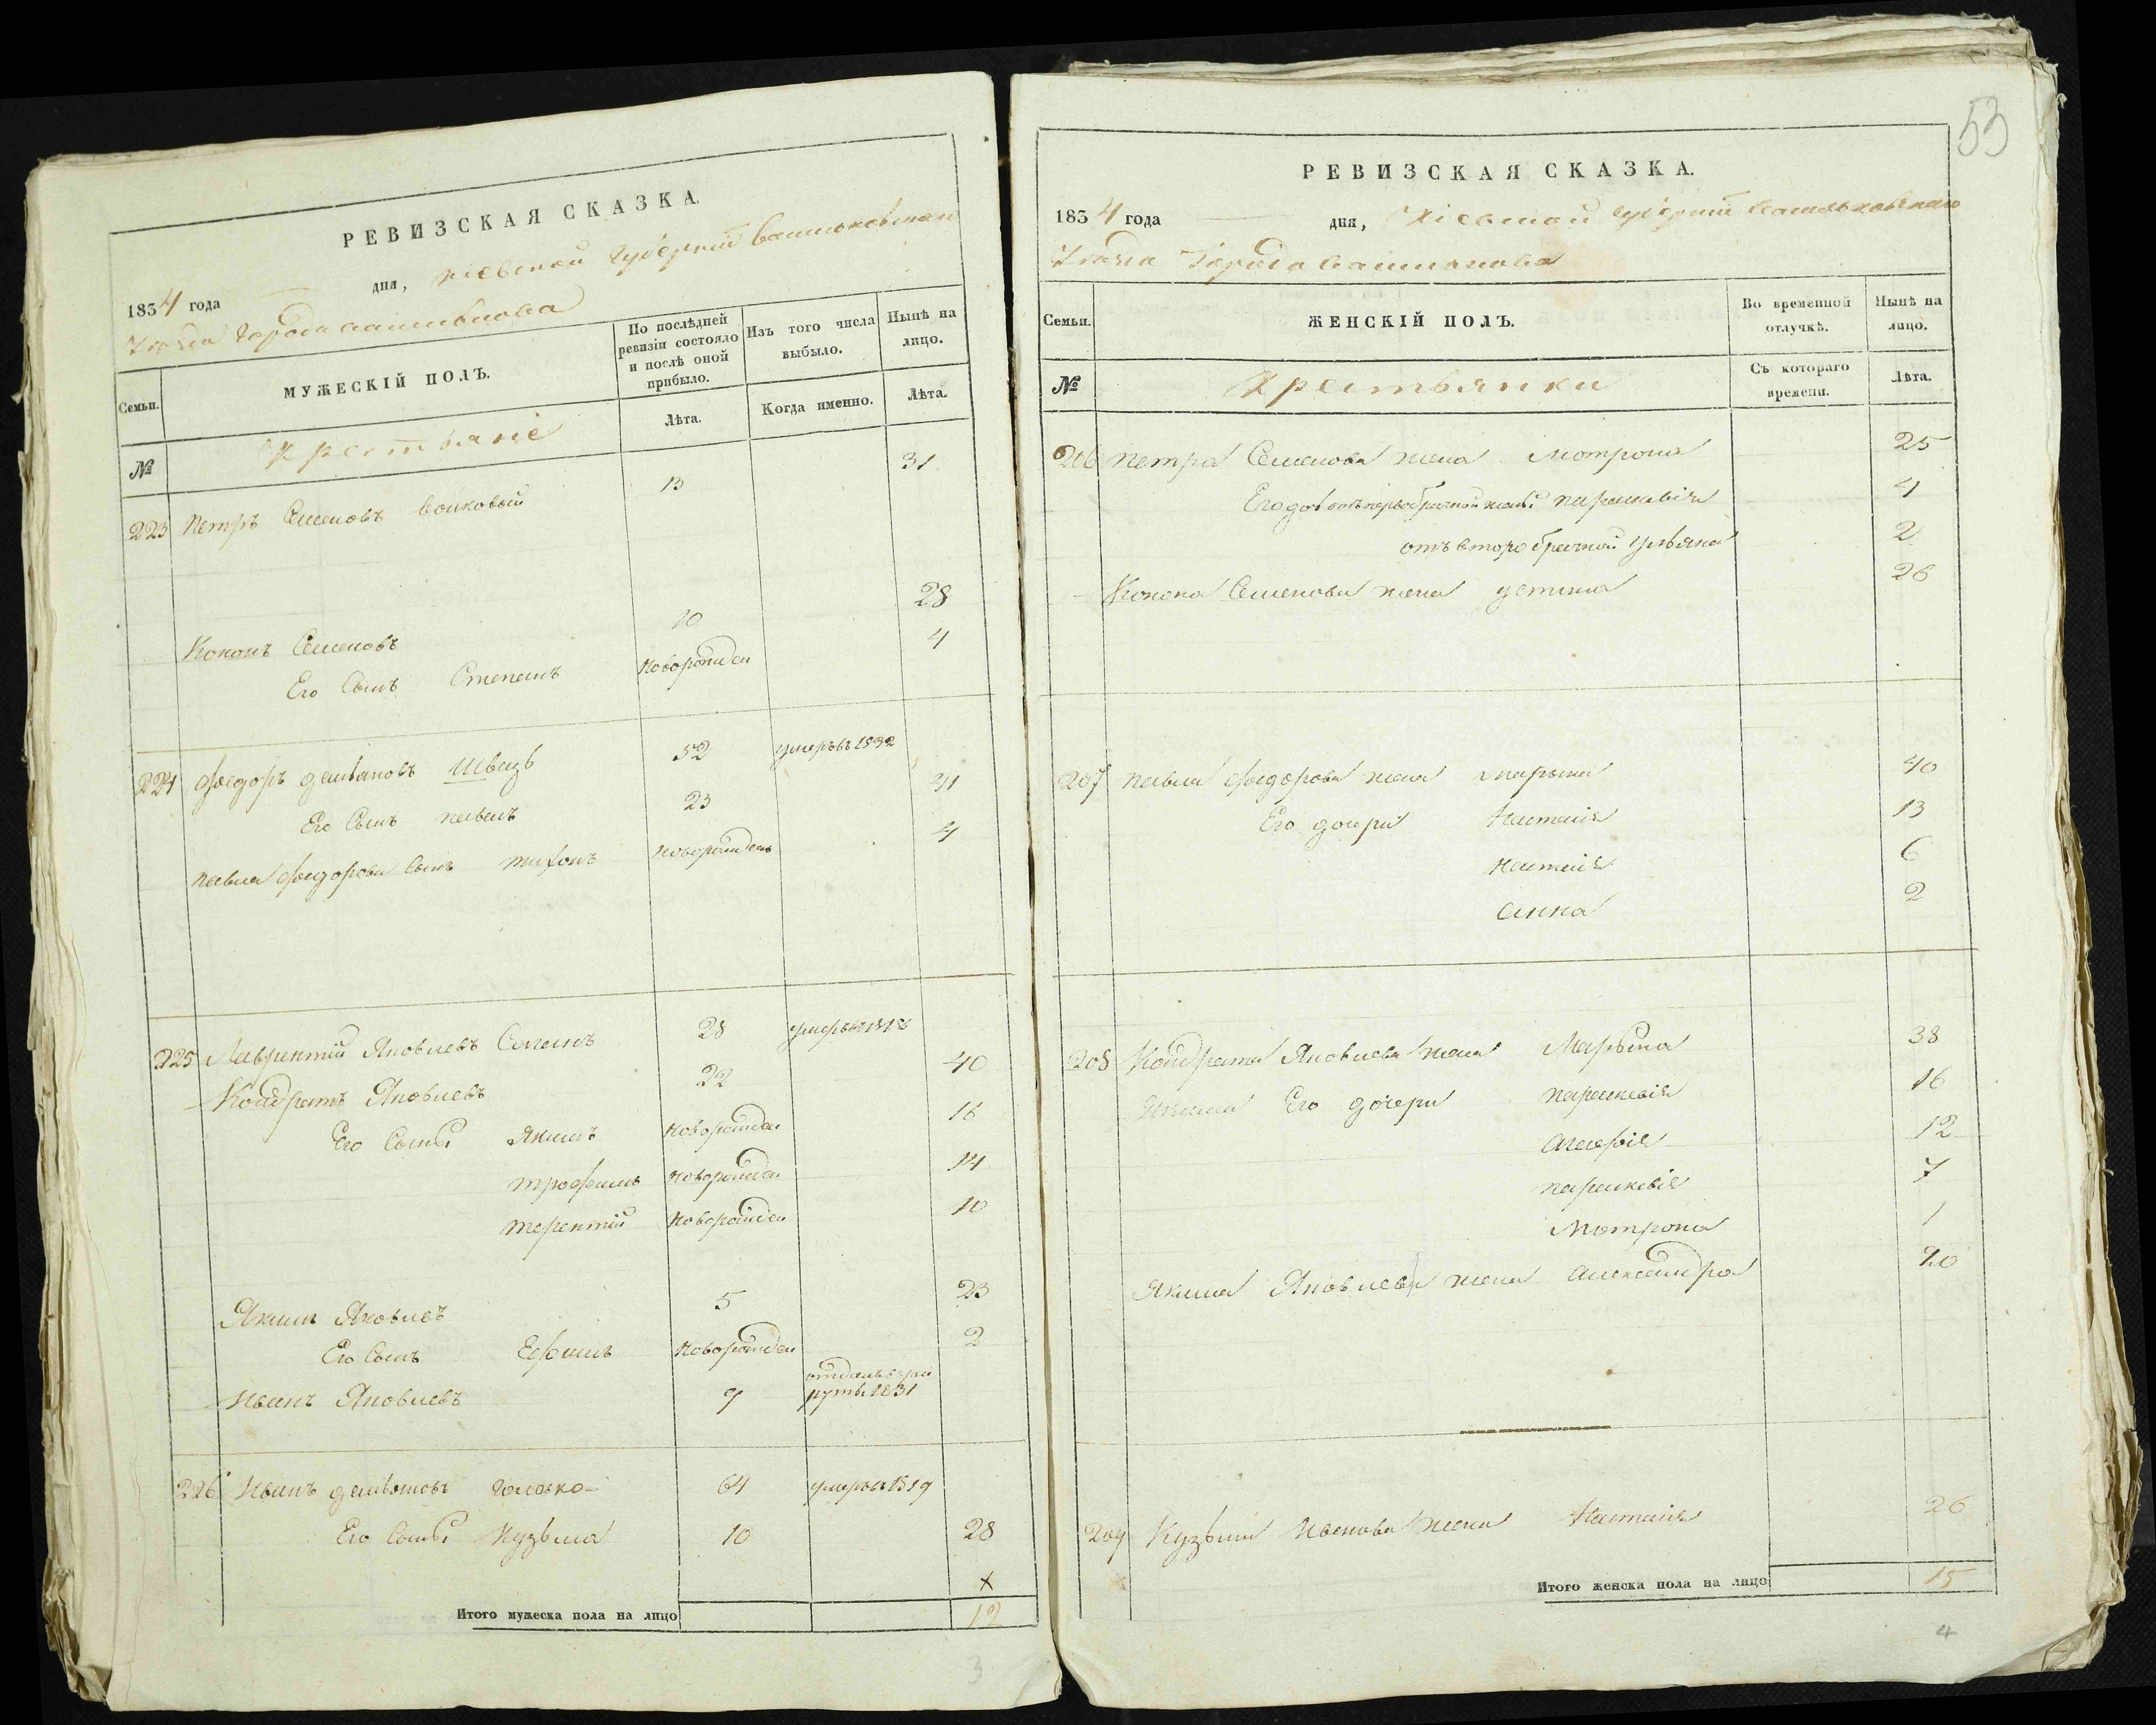 РЕВИЗСКАЯ СКАЗКА.
1834 года дня, Кіевской Губерніи Васильковскаго
Уезда Города Василькова
Семьи. МУЖЕСКІЙ ПОЛЪ. По послѣдней ревизіи состояло и послѣ оной прибыло. Изъ того числа выбыло. Нынѣ на лицо.
№ Крестьяне Лѣта. Когда именно. Лѣта.
223 Петръ Семеновъ 13 31
Кононъ Семеновъ 10 28
Его Сынъ Степанъ новорожден 4
224 Федоръ Демьяновъ Швецъ 52 умеръ въ 1832
Его Сынъ Павелъ 23 31
Павла Федорова Сынъ Тихонъ новорожденъ 4
225 Лаврентій Яковлевъ 28
Кондратъ Яковлевъ 22 40
Его Сыны Якимъ новорожден 16
Трофимъ новорожден 14
Терентій новорожден 10
Якимъ Яковлевъ 5 23
Его Сынъ Ефимъ новорожден 2
Иванъ Яковлевъ 9 отданъ въ рекруты 1831
226 Иванъ 64 умеръ 1819
Его Сынъ Кузьма 10 28
х
Итого мужеска пола на лицо 12
3
53
РЕВИЗСКАЯ СКАЗКА.
1834 года дня, Кіевской Губерніи Васильковскаго
Уезда Города Василькова
Семьи. ЖЕНСКІЙ ПОЛЪ. Во временной отлучкѣ. Нынѣ на лицо.
№ Крестьянки Съ котораго времени. Лѣта.
206 Петра Семенова жена Мотрона 25
Его доч отъ первобрачной жены Параскевія 4
отъ второбрачной Ульяна 2
Конона Семенова жена Устина 26
207 Павла Федорова жена Марына 40
Его дочери Настасія 13
Настасія 6
Анна 2
208 Кондрата Яковлева жена Марына 38
Его дочери Параскевія 16
Агафія 12
Параскевія 7
Мотрона 1
Якима Яковлева жена Александра 20
209 Кузьмы Иванова жена Настасія 26
Итого женска пола на лицо 15
4